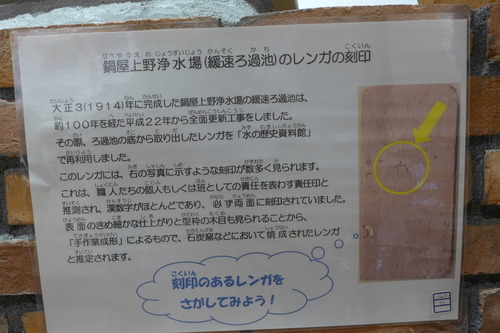 鍋屋上野浄水場(緩速ろ過池)のレンガの刻印
大正3(1914)年に完成した鍋屋上野浄水場の緩速ろ過池は、
約100年を経た平成22年から全面更新工事をしました。
その際、ろ過池の底から取り出したレンガを「水の歴史資料館」
で再利用しました。
このレンガには、右の写真に示すような刻印が数多く見られます。
これは、職人たちの個人もしくは班としての責任を表わす責任印と
推測され、漢数字がほとんどであり、必ず短面に刻印されていました。
表面のきめ細かな仕上がりと型枠の木目も見られることから、
「手作業成形」によるもので、石炭窯などにおいて焼成されたレンガ
と推定されます。
刻印のあるレンガを
さがしてみよう!